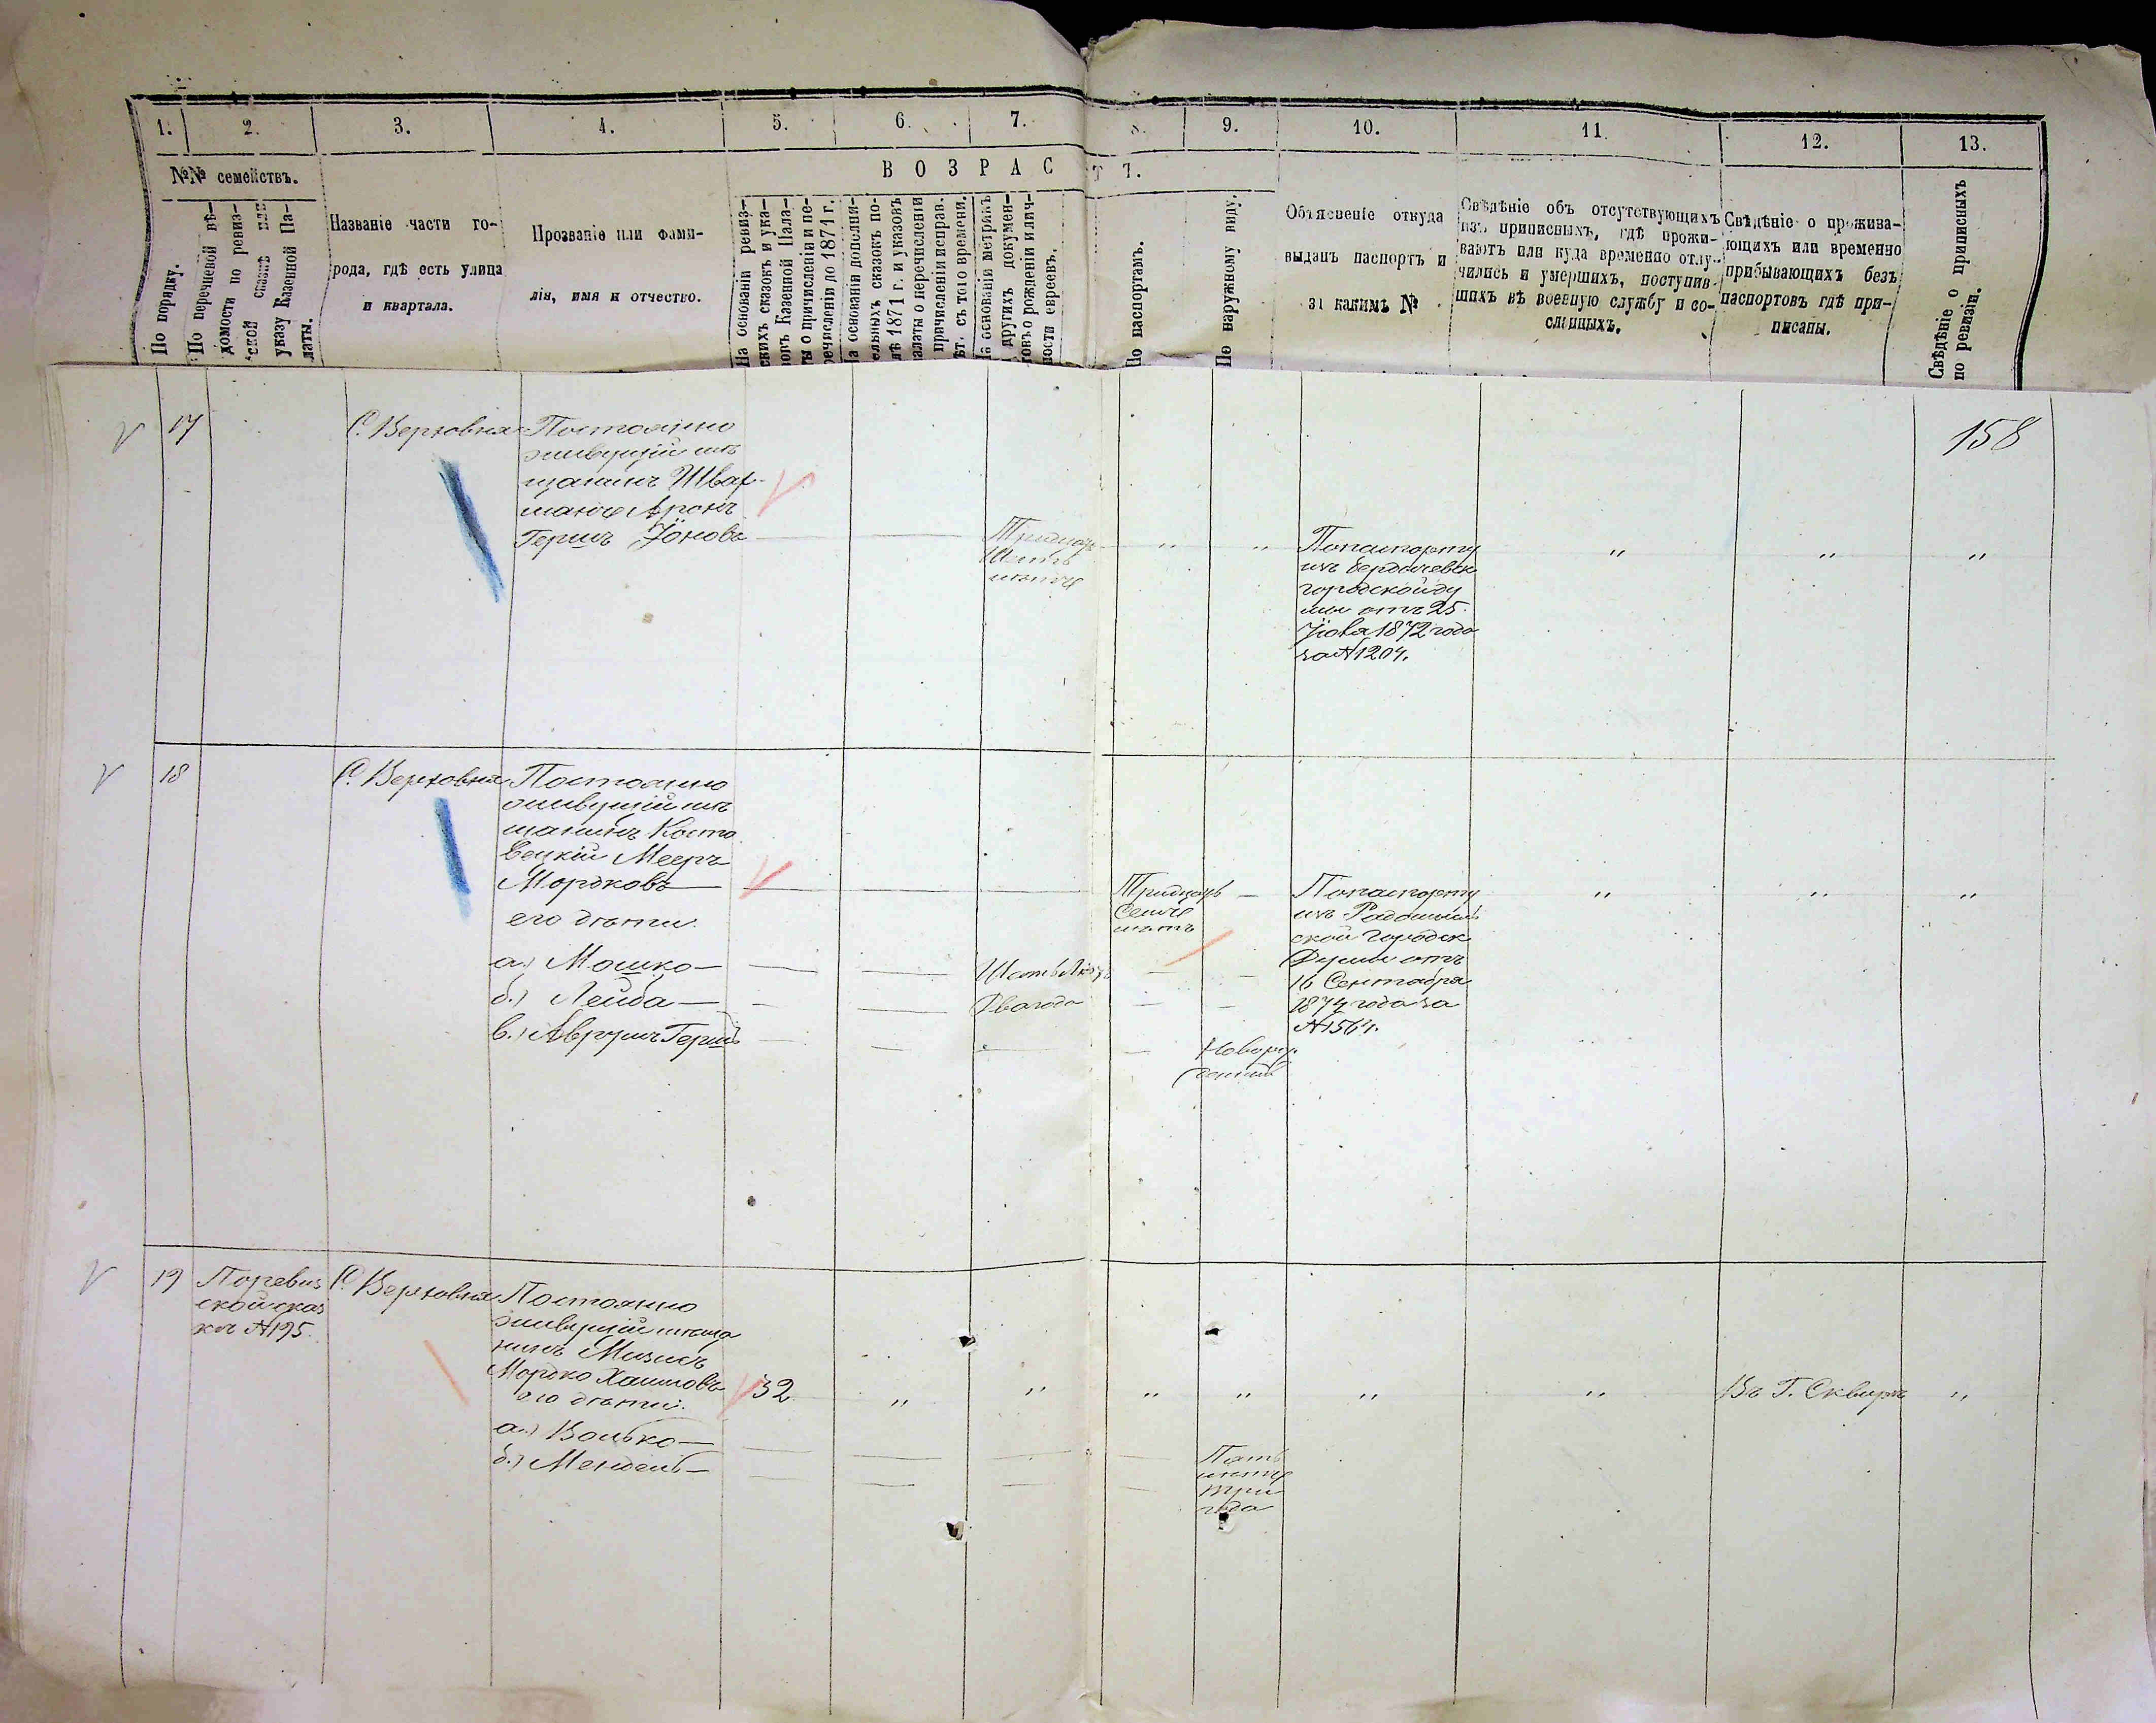 1. 2. 3. 4. 5. 6. 7. 8. 9. 10. 11. 12. 13.
№№ семействъ.
ВОЗРАСТЪ.
По порядку.
По перечневой вѣ-
домости по ревиз-
ской сказкѣ или
указу Казенной Па-
латы.
Названіе части го-
рода, гдѣ есть улица
и квартала.
Прозваніе или фами-
лія, имя и отчество.
На основаніи ревиз-
скихъ сказокъ и ука-
зовъ Казенной Пала-
ты о причисленіи и пе-
речисленіи до 1871 г.
На основаніи дополни-
тельныхъ сказокъ по-
слѣ 1871 г. и указовъ
палаты о перечисленіи
и причисленіи исправ.
лѣт. съ того времени.
На основаніи метрикъ
и другихъ докумен-
товъ о рожденіи и лич-
ности евреевъ.
По паспортамъ.
По наружному виду.
Объясненіе откуда
выданъ паспортъ и
за какимъ №
Свѣдѣніе объ отсутствующихъ
изъ приписныхъ, гдѣ прожи-
ваютъ или куда временно отлу-
чились и умершихъ, поступив-
шихъ въ военную службу и со-
сланныхъ.
Свѣдѣніе о прожива-
ющихъ или временно
прибывающихъ безъ
паспортовъ гдѣ при-
писаны.
Свѣдѣніе о приписныхъ
по ревизіи.
158
17
С. Верховня
Постоянно
живущій мѣ
щанинъ Швар
манъ Аронъ
Гершъ Іоновъ
Тридцать
Шесть
лѣтъ
По паспорту
изъ Бердичевск
городской ду
мы отъ 25
1872 года
за №1204.
18
С. Верховня
Постоянно
живущій мѣ
щанинъ Косто
вецкій Мееръ
Мордковъ
его дѣти.
а.) Мошко
б.) Лейба
в.) Аврумъ Гершъ
Тридцать
Семь
лѣтъ
Шесть лѣтъ
Два года
Новорож
денный
По паспорту
изъ Радомысль
ской Городск
Думы отъ
16 Сентября
1874 года за
№1564.
19
По ревиз
ской сказ
кѣ №195.
С. Верховня
Постоянно
живущій мѣща
нинъ Мизисъ
Мордко Хаимовъ
его дѣти.
а.) Волько
б.) Мендель
32
Пять
лѣтъ
три
года
Въ Г. Сквирѣ